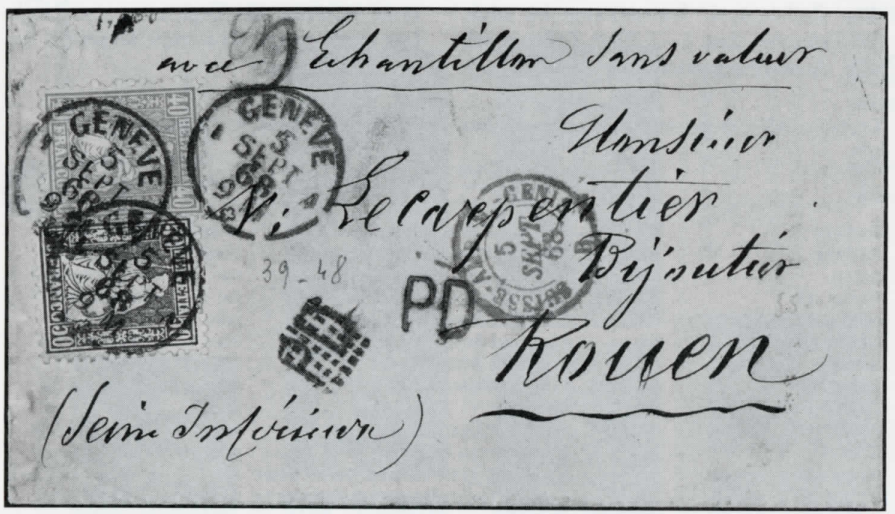 avec Echantillon sans valeur
Monsieur
Lecarpentier
Bijoutier
Rouen
(Seine Inférieure)
GENÈVE
5
SEPT
68
9
GENÈVE
5
SEPT
68
9
GENÈVE
5
SEPT
68
9
40
50
39-48
PD
5
SEPT
68